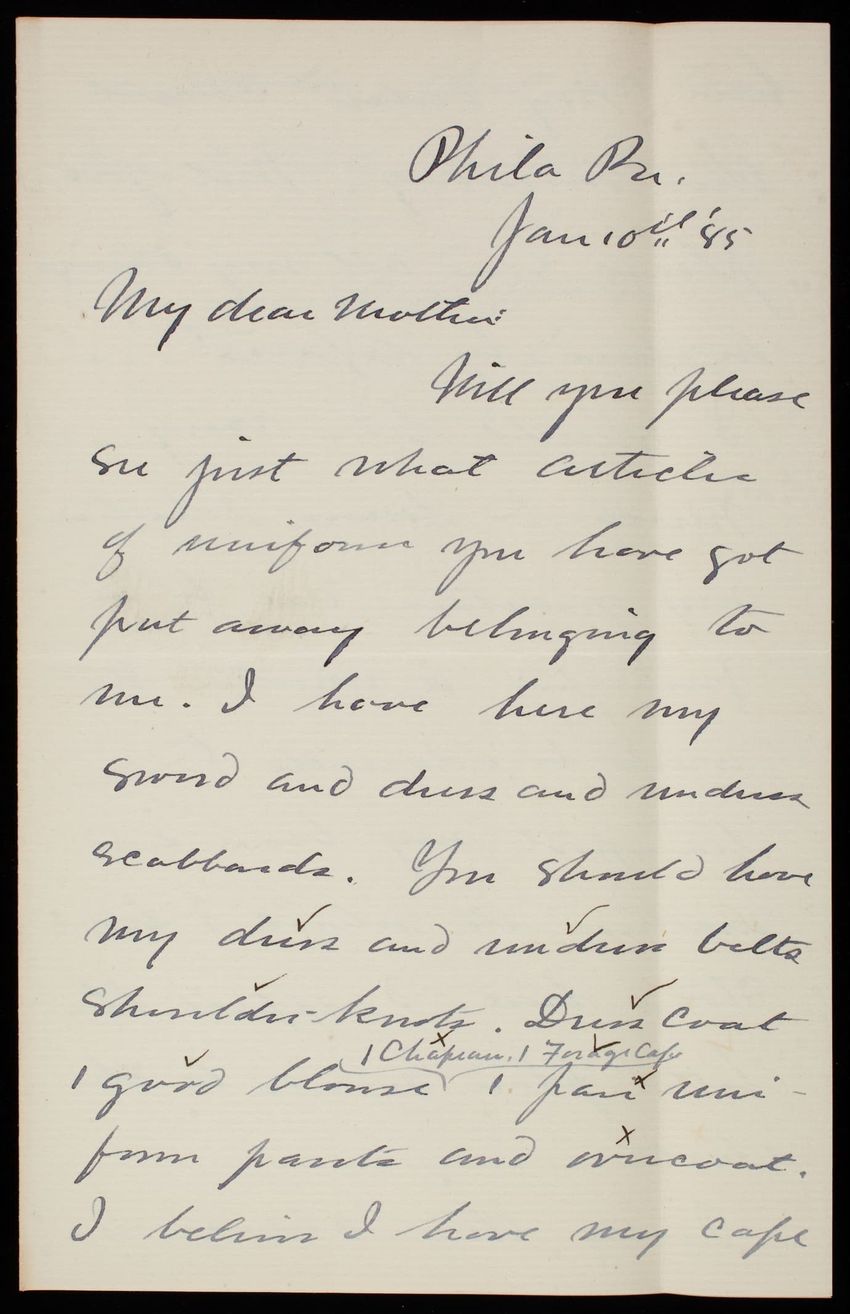 Phila Pa.
Jan 10th '85
My dear Mother:
Will you please
see just what articles
of uniform you have got
put away belonging to
me. I have here my
sword and dress and undress
scabbards. You should have
my dress and undress belts
shoulder-knots. Dress coat
1 Chapeau, 1 Forage Cap
1 good blouse 1 pair uni-
form pants and overcoat.
I believe I have my cape